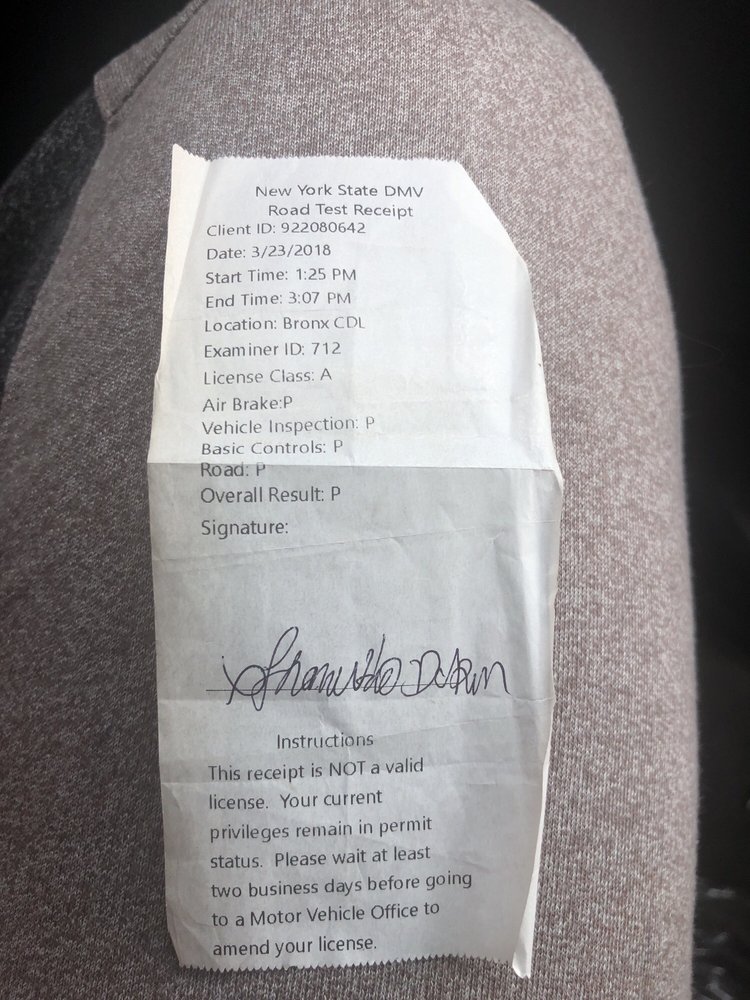 New York State DMV
Road Test Receipt
Client ID: 922080642
Date: 3/23/2018
Start Time: 1:25 PM
End Time: 3:07 PM
Location: Bronx CDL
Examiner ID: 712
License Class: A
Air Brake:P
Vehicle Inspection: P
Basic Controls: P
Road: P
Overall Result: P
Signature:
Instructions
This receipt is NOT a valid
license. Your current
privileges remain in permit
status. Please wait at least
two business days before going
to a Motor Vehicle Office to
amend your license.